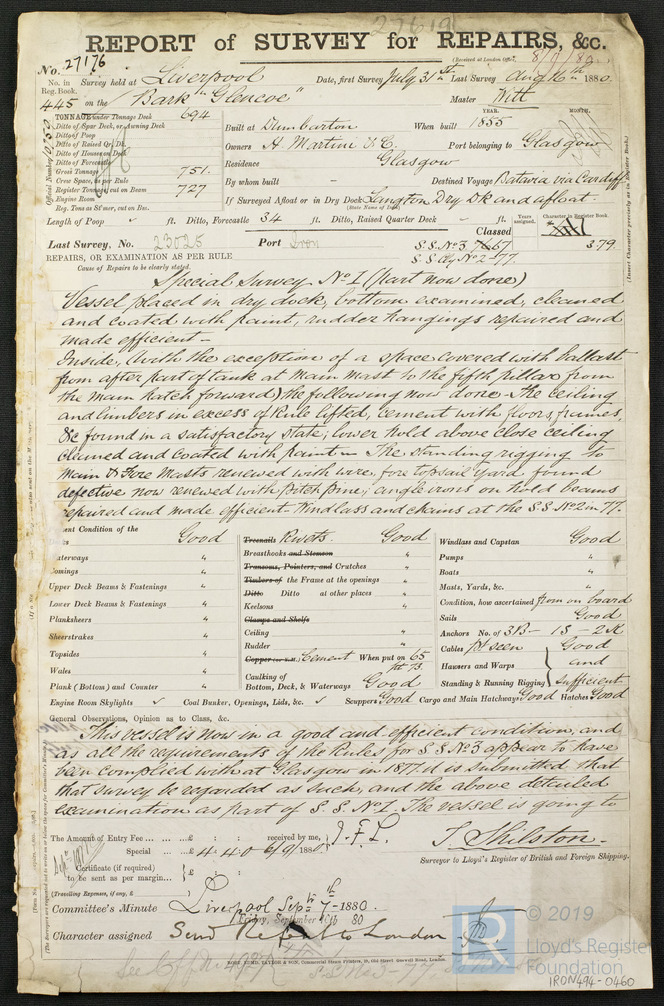 27619
REPORT of SURVEY for REPAIRS, &c.
(Received at London Office, 8/9/80)
No. 27176
No. in Reg. Book. Survey held at Liverpool Date, first Survey July 31st Last Survey Aug 16th 1880.
445 on the Bark "Glencoe" Master Witt
TONNAGE under Tonnage Deck 694
Ditto of Spar Deck, or Awning Deck
Ditto of Poop
Ditto of Raised Qr. Dk.
Ditto of Houses on Deck
Ditto of Forecastle
Gross Tonnage 751.
Crew Space, as per Rule
Register Tonnage, cut on Beam 727
Engine Room
Reg. Tons as St'mer, cut on Dec.
Official Number
YEAR. MONTH.
Built at Dumbarton When built 1855
Owners A. Martini & C. Port belonging to Glasgow
Residence Glasgow
By whom built - Destined Voyage Batavia via Cardiff
If Surveyed Afloat or in Dry Dock Langton Dry Dk and afloat.
(State Name of Dock)
Length of Poop " ft. Ditto, Forecastle 34 ft. Ditto, Raised Quarter Deck " ft.
Years assigned. Character in Register Book.
(Insert Character precisely as in Register Book.)
Classed
Last Survey, No. 23025 Port Iron S.S. No 3 7&67 3,79
S.S. Cly No 2-77.
REPAIRS, OR EXAMINATION AS PER RULE
Cause of Repairs to be clearly stated.
Special Survey No I (part now done)
Vessel placed in dry dock, bottom examined, cleaned
and coated with paint, rudder hangings repaired and
made efficient -
Inside, (with the exception of a space covered with ballast
from after part of tank at main mast to the fifth pillar from
the main hatch forward) the following now done - The ceiling
and limbers in excess of Rule lifted, cement with floors, frames,
&c found in a satisfactory state, lower hold above close ceiling
cleaned and coated with paint - The standing rigging to
Main & Fore Masts renewed with wire, fore topsail yard found
defective now renewed with pitch pine, angle irons on hold beams
repaired and made efficient. Windlass and chains at the S.S. No 2 in 77.
ent Condition of the
s Good
aterways "
omings "
Upper Deck Beams & Fastenings "
Lower Deck Beams & Fastenings "
Planksheers "
Sheerstrakes "
Topsides "
Wales "
Plank (Bottom) and Counter "
Treenails Rivets Good
Breasthooks and Stemson "
Transoms, Pointers, and Crutches "
Timbers of the Frame at the openings "
Ditto Ditto at other places "
Keelsons "
Clamps and Shelfs
Ceiling "
Rudder "
Copper Cement When put on 65
pt 73.
Caulking of Bottom, Deck, & Waterways Good
Windlass and Capstan Good
Pumps "
Boats "
Masts, Yards, &c. "
Condition, how ascertained from on board
Sails Good
Anchors No. of 3B - 1S - 2K
Cables pt seen Good
Hawsers and Warps and
Standing & Running Rigging Sufficient
Engine Room Skylights ✓ Coal Bunker, Openings, Lids, &c. ✓ Scuppers Good Cargo and Main Hatchways Good Hatches Good
General Observations, Opinion as to Class, &c.
This vessel is now in a good and efficient condition, and
as all the requirements of the Rules for S.S. No 3 appear to have
been complied with at Glasgow in 1877 it is submitted that
that survey be regarded as such, and the above detailed
examination as part of S.S. No I. The vessel is going to
The Amount of Entry Fee ... £ : : received by me, J.F.L.
Special ... £ 4:4:0 6/9/1880.
Certificate (if required) to be sent as per margin... £ : :
(Travelling Expenses, if any, £ )
T. Shilston.
Surveyor to Lloyd's Register of British and Foreign Shipping.
Committee's Minute Liverpool Septr 7th 1880.
Friday, September 80
Character assigned Send Report to London
ROBT. EDMD. TAYLOR & SON, Commercial Steam Printers, 19, Old Street, Goswell Road, London.
© 2019
LR
Lloyd's Register
Foundation
IRON494-0460